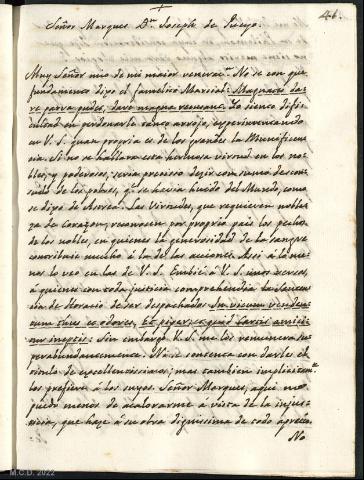 +
46.
Señor Marques Dn. Joseph de Pueyo.
Muy Señor mio de mi maior venerac.n No se con que
fundamento dijo el famelico Marcial: Magna do
parva pudet, dare magna
en perdonarle tanto arrojo, experimentando
en V. S. quan propria es de los grandes la Munificen
cia. Si no se hallara esta hermosa virtud en los no
bles, y poderosos, seria preciso dezir con sumo descon
suelo de los pobres, q.e se havia huido del Mundo, como
se dijo de Astrea. Las Virtudes, que requieren noble
za de corazon, reconocen por proprio pais los pechos
de los nobles, en quienes la generosidad de la sangre
contribuie mucho á la de las acciones. Assi á lo me
nos lo veo en las de V. S. Embié á V. S. unos versos,
á quienes con toda justicia comprehendia la Senten
cia de Horacio de ser despachados In vicum venden
tem thus et odores, Et piper, et quid quid chartis amici
tur ineptis: Sin embargo V. S. me los remunera su
perabundantemente. No se contenta con darles el
titulo de excellentissimos; mas tambien implicitam.te
los prefiere á los suyos. Señor Marques, aqui no
puedo menos de acalorarme á vista de la injus
ticia, que haze á su obra dignissima de todo aprecio.
No
M.C.D. 2022